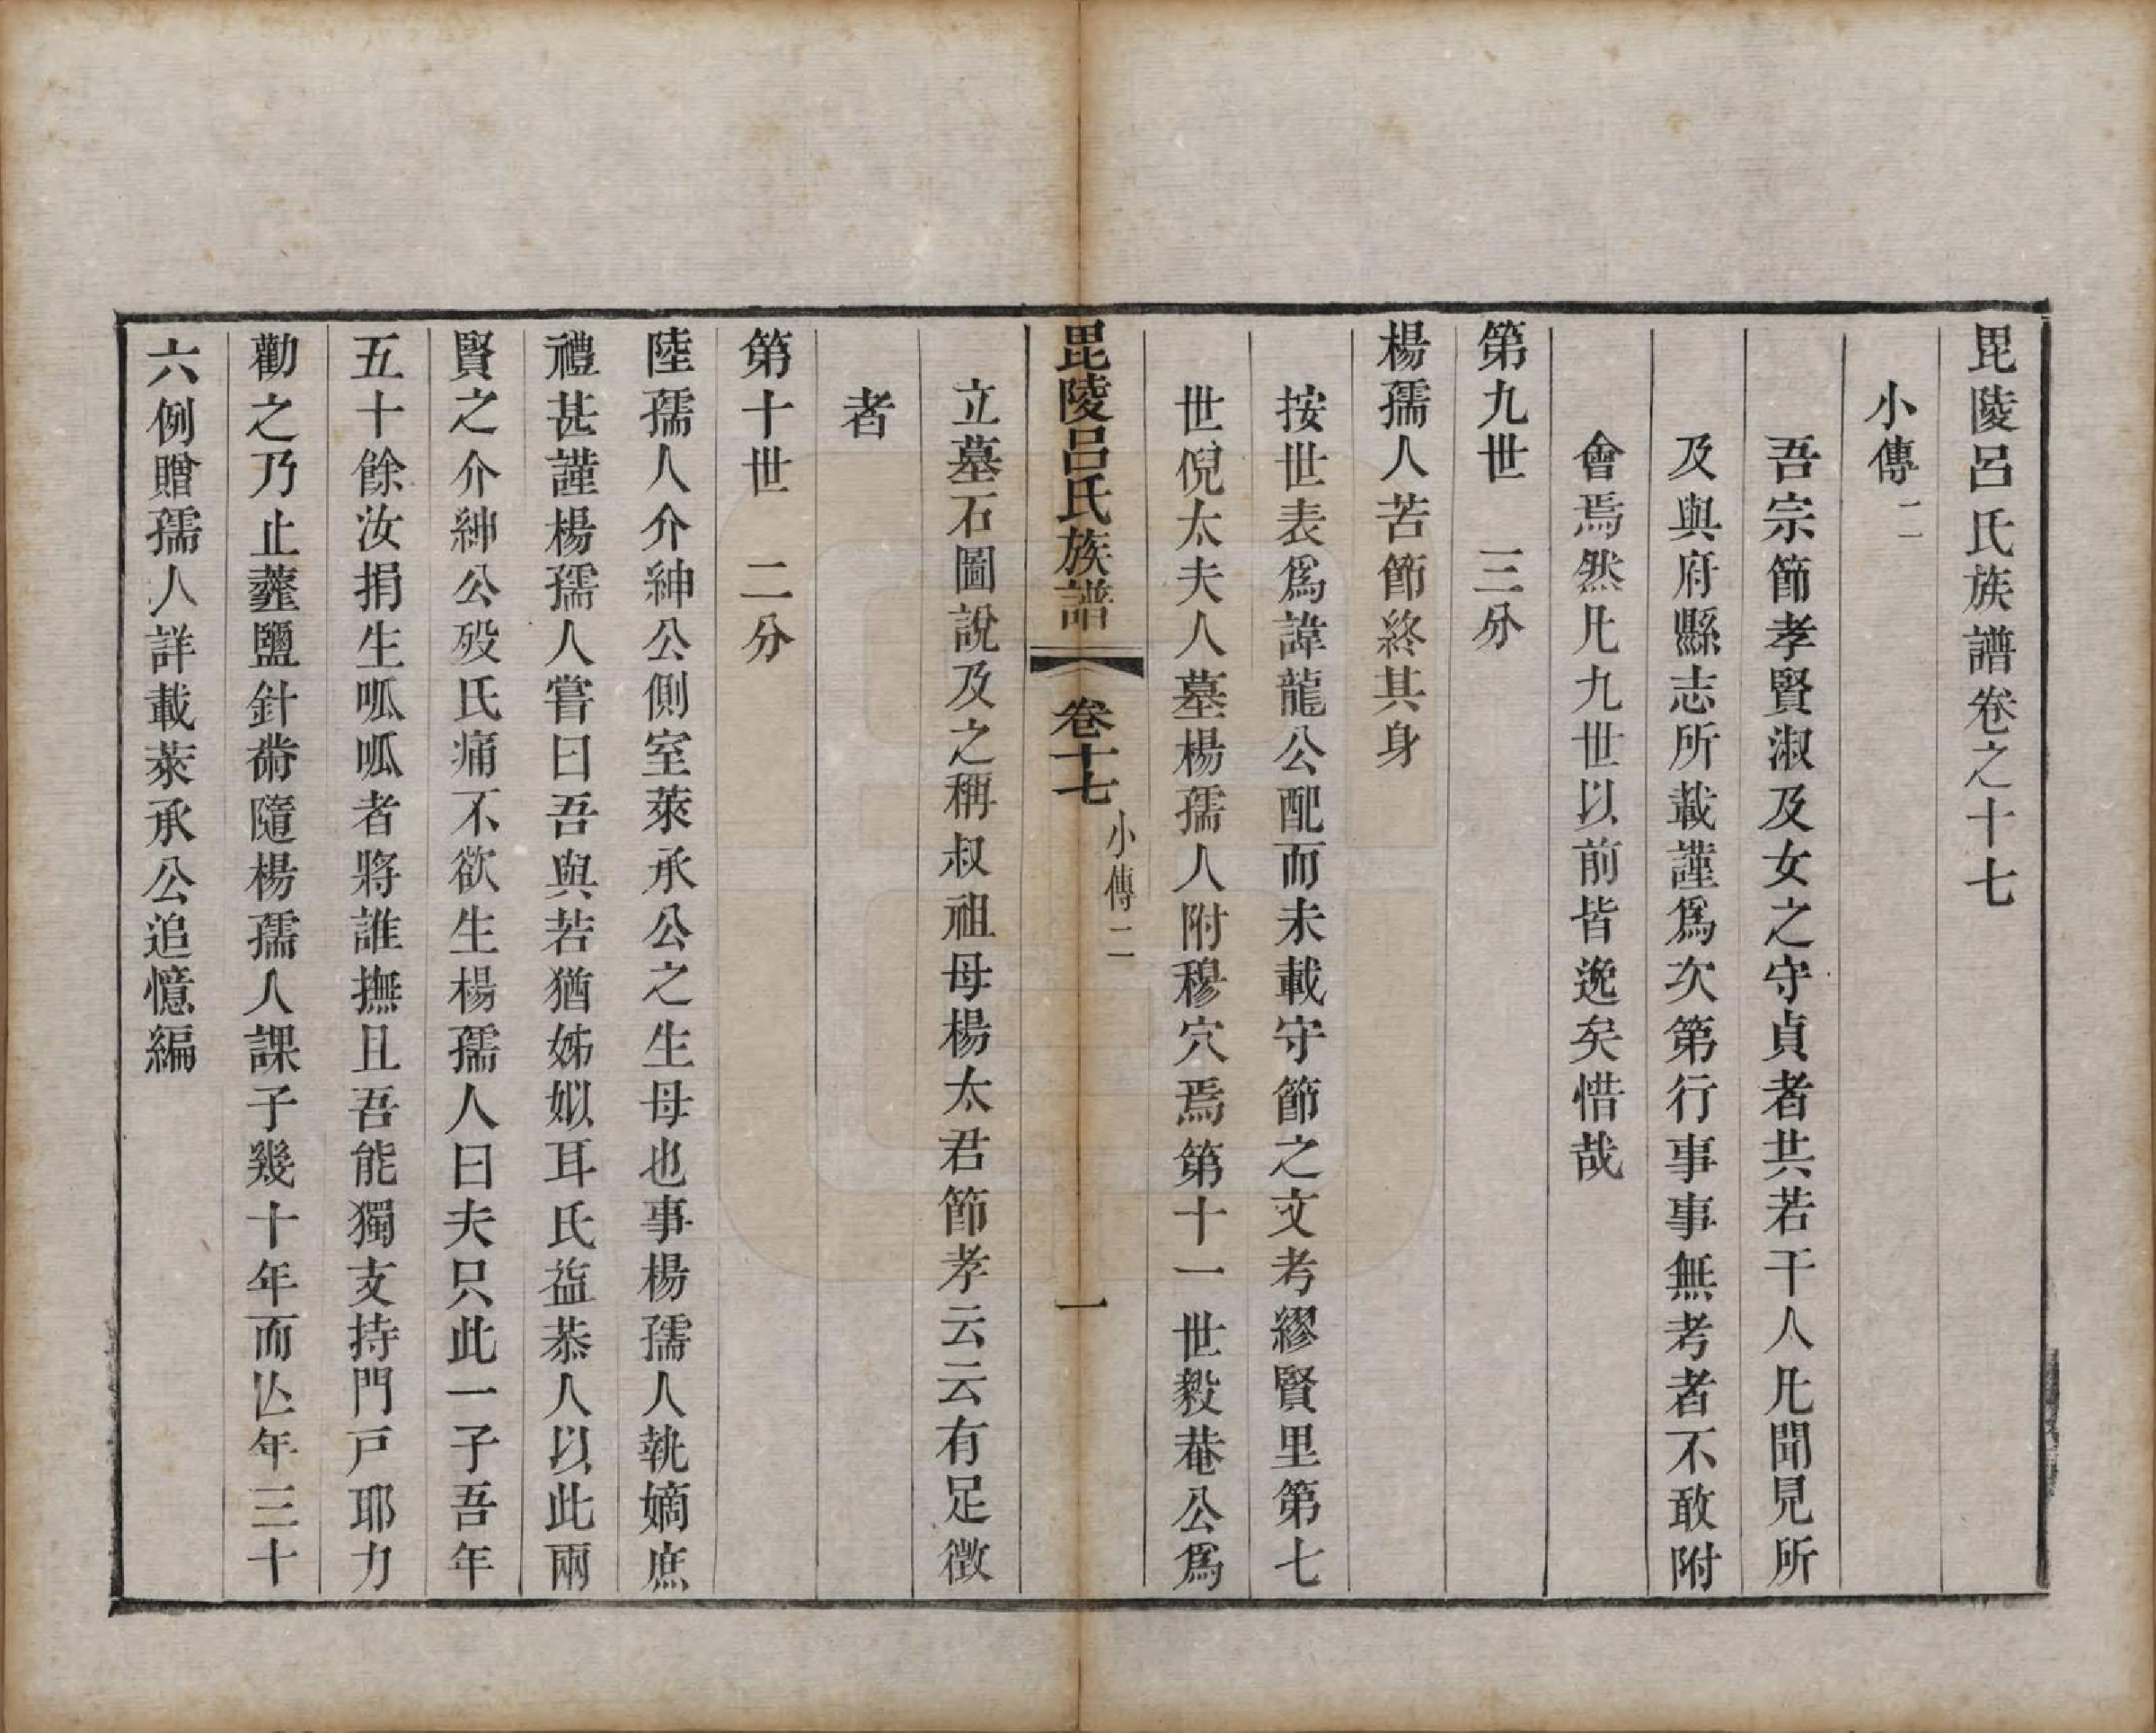 毘陵呂氏族譜卷之十七
小傳二
吾宗節孝賢淑及女之守貞者共若干人凡聞見所
及與府縣志所載謹爲次第行事事無考者不敢附
會焉然凡九世以前皆逸矣惜哉
第九世 三分
楊孺人苦節終其身
按世表爲諱龍公配而未載守節之文考繆賢里第七
世倪太夫人墓楊孺人附穆穴焉第十一世毅菴公爲
毘陵呂氏族譜 卷十七 小傳二 一
立墓石圖說及之稱叔祖母楊太君節孝云云有足徵
者
第十世 二分
陸孺人介紳公側室萊承公之生母也事楊孺人執嫡庶
禮甚謹楊孺人嘗曰吾與若猶姊姒耳氏益恭人以此兩
賢之介紳公歿氏痛不欲生楊孺人曰夫只此一子吾年
五十餘汝捐生呱呱者將誰撫且吾能獨支持門戸耶力
勸之乃止虀鹽針黹隨楊孺人課子幾十年而亾年三十
六例贈孺人詳載萊承公追憶編